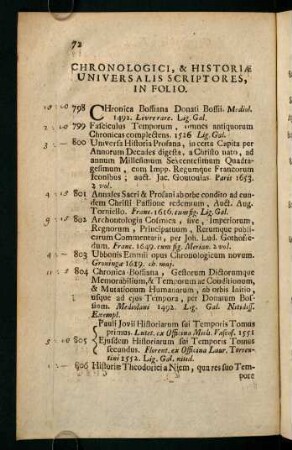 72
CHRONOLOGICI, & HISTORIÆ
UNIVERSALIS SCRIPTORES,
IN FOLIO.
798 CHronica Bossiana Donati Bossii. Mediol.
1492. Livre rare. Lig. Gal.
799 Fasciculus Temporum, omnes antiquorum
Chronicas complectens. 1526 Lig. Gal.
800 Universa Historia Profana, in certa Capita per
Annorum Decades digesta, a Christo nato, ad
annum Millesimum Sexcentesimum Quadra-
gesimum, cum Imp. Regumque Francorum
Iconibus; auct. Jac. Goutoulas Paris 1653.
2 vol.
801 Annales Sacri & Profani ab orbe condito ad eun-
dem Christi Passione redemtum, Auct. Aug.
Torniello. Franc. 1616. cum fig. Lig. Gal.
802 Archontologia Cosmica, sive, Imperiorum,
Regnorum, Principatuum, Rerumque publi-
carum Commentarii, per Joh. Lud. Gothofre-
dum. Franc. 1649. cum fig. Merian. 2 vol.
803 Ubbonis Emmii opus Chronologicum novum.
Groningæ 1619. ch. maj.
804 Chronica Bossiana, Gestorum Dictorumque
Memorabilium, & Temporum ac Conditionum,
& Mutationum Humanarum, ab orbis Initio,
usque ad ejus Tempora, per Donatum Bos-
sium. Mediolani 1492. Lig. Gal. Nitidiss.
Exempl.
Pauli Jovii Historiarum sui Temporis Tomus
primus. Lutet. ex Officina Mich. Vascos. 1553
805 Ejusdem Historiarum sui Temporis Tomus
secundus. Florent. ex Officina Laur. Torren-
tini 1552. Lig. Gal. nitid.
806 Historiæ Theodorici a Niem, qua res suo Tem-
pore